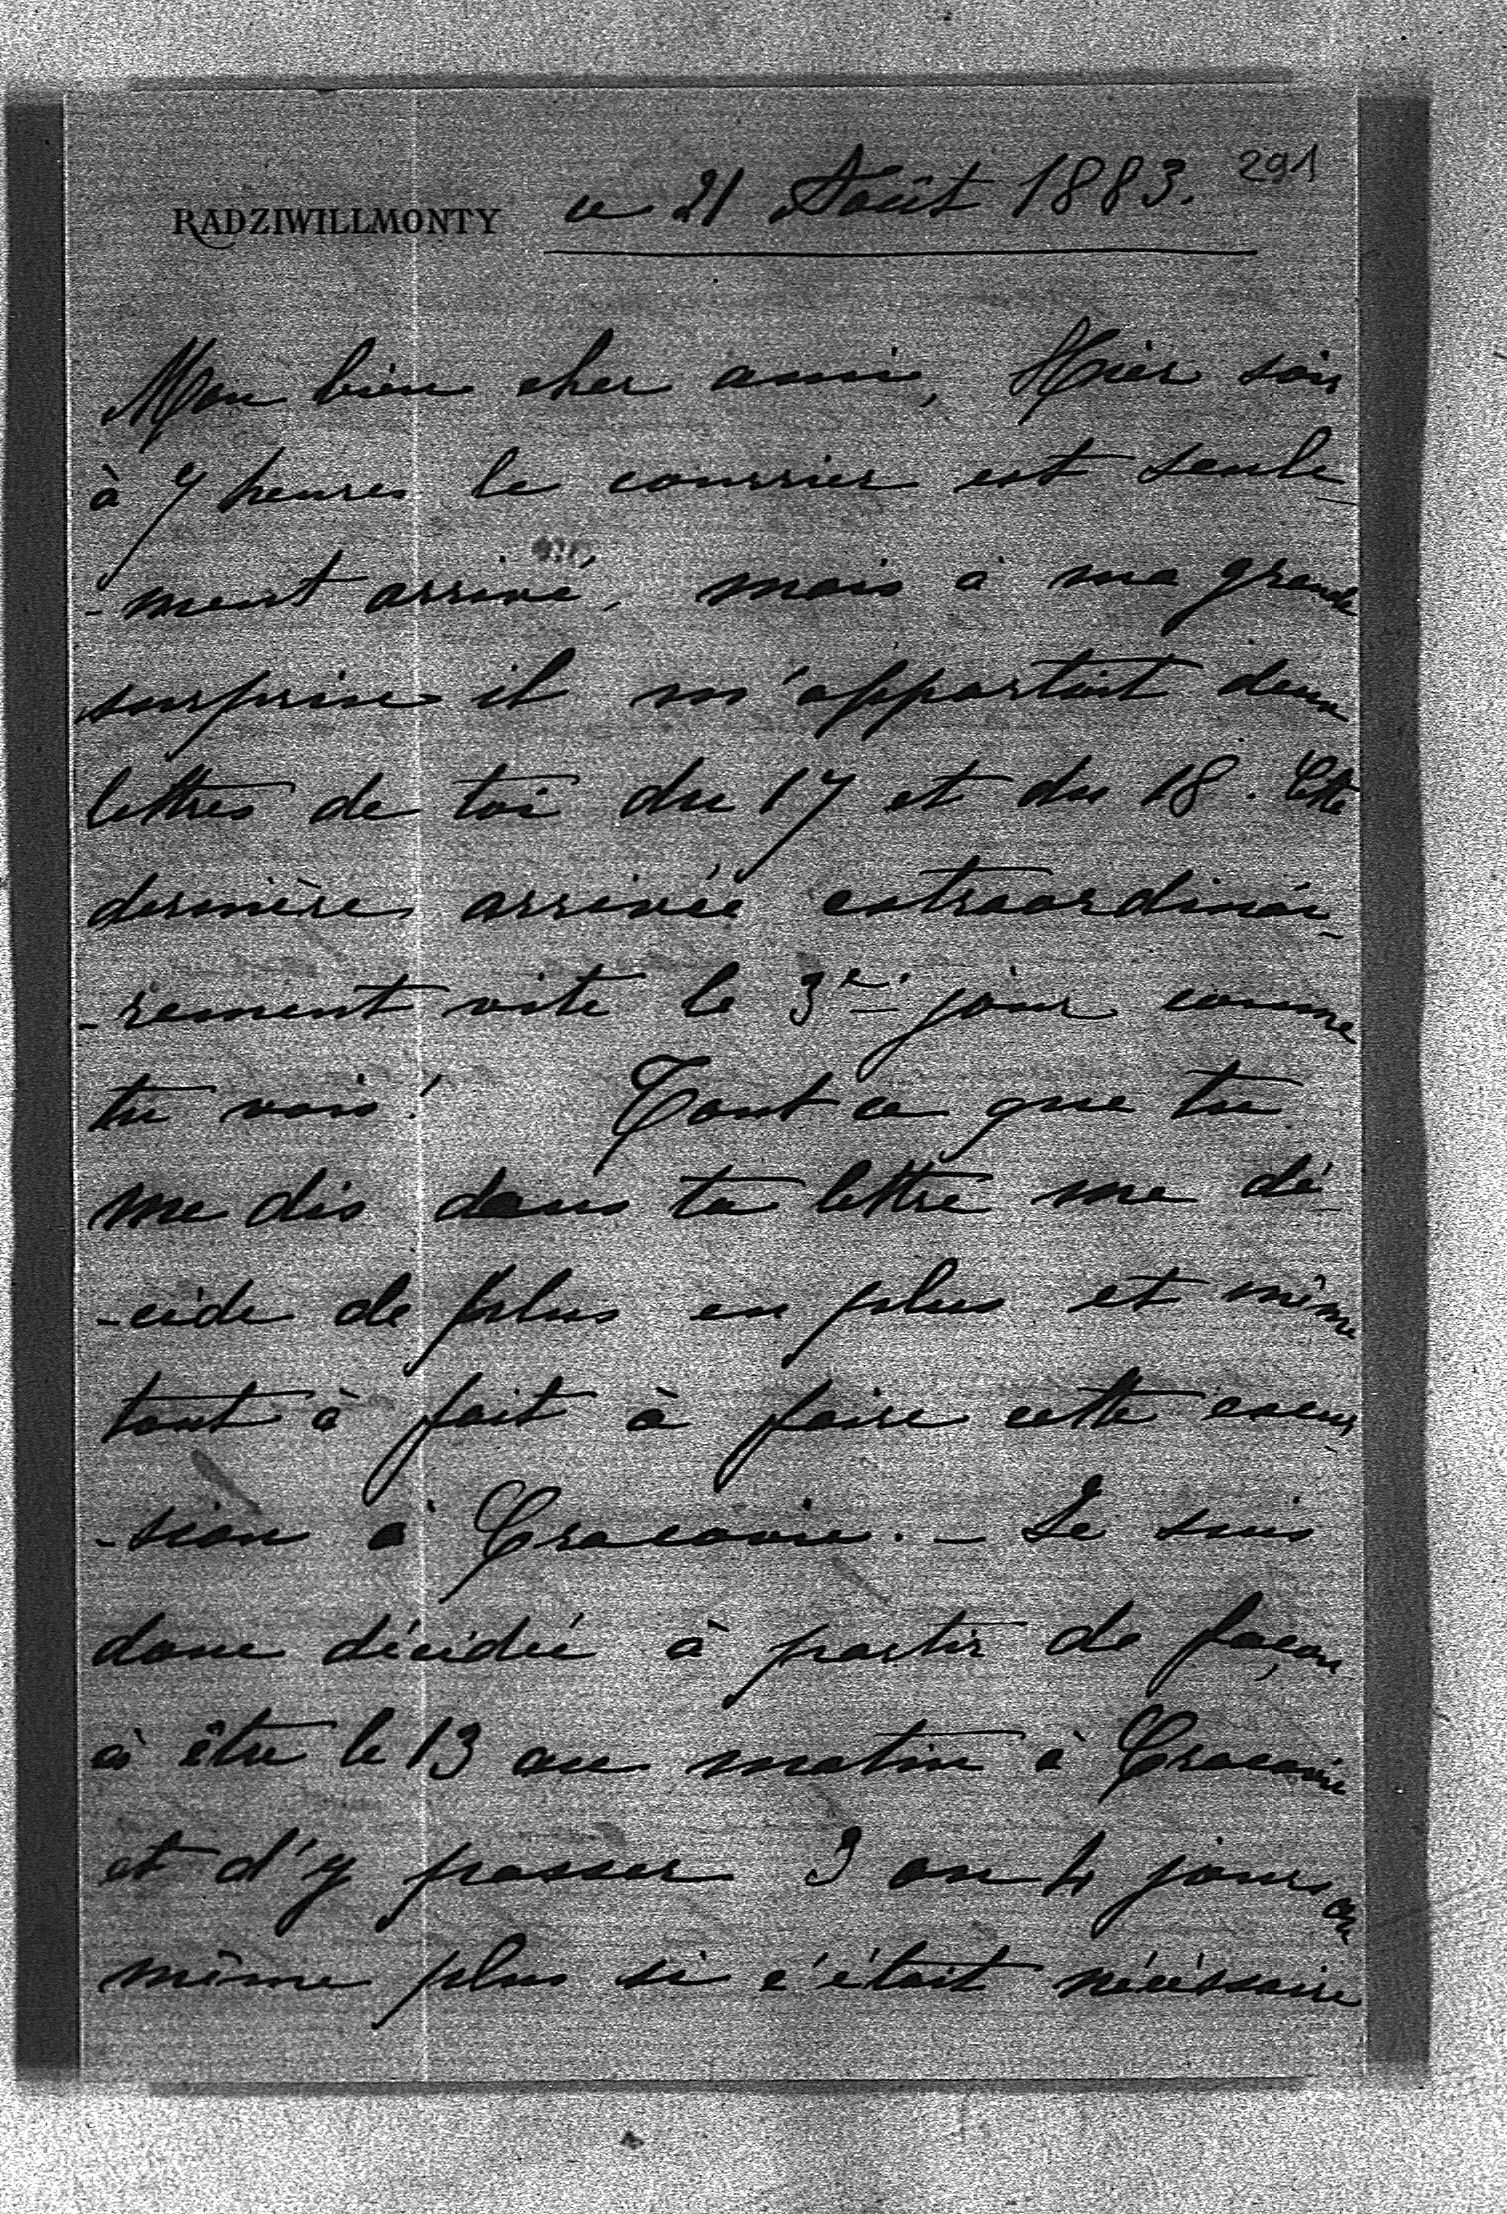 291
RADZIWILLMONTY ce 21 Août 1883.
Mon bien cher ami, Hier soir
à 7 heures le courrier est seule-
-ment arrivé, mais à ma grande
surprise il m'apportait deux
lettres de toi du 17 et du 18. Cette
dernière arrivée extraordinai-
-rement vite le 3e jour comme
tu vois! Tout ce que tu
me dis dans ta lettre me dé-
-cide de plus en plus et même
tout à fait à faire cette excur-
-sion à Cracovie. - Je suis
donc décidée à partir de façon
à être le 13 au matin à Cracovie
et d'y passer 3 ou 4 jours ou
même plus si c'était nécéssaire